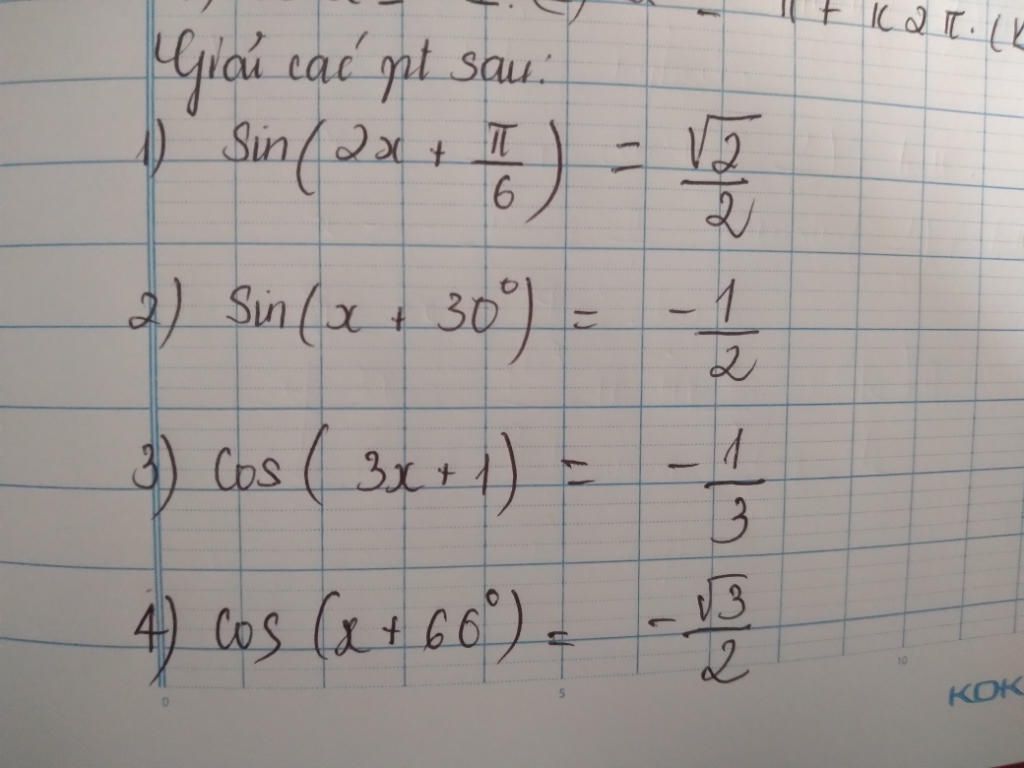 π + k2π. (k
Giải các pt sau:
1) Sin(2x + π/6) = √2/2
2) Sin(x + 30°) = -1/2
3) Cos(3x + 1) = -1/3
4) Cos(x + 66°) = -√3/2
0 5 10
KOK